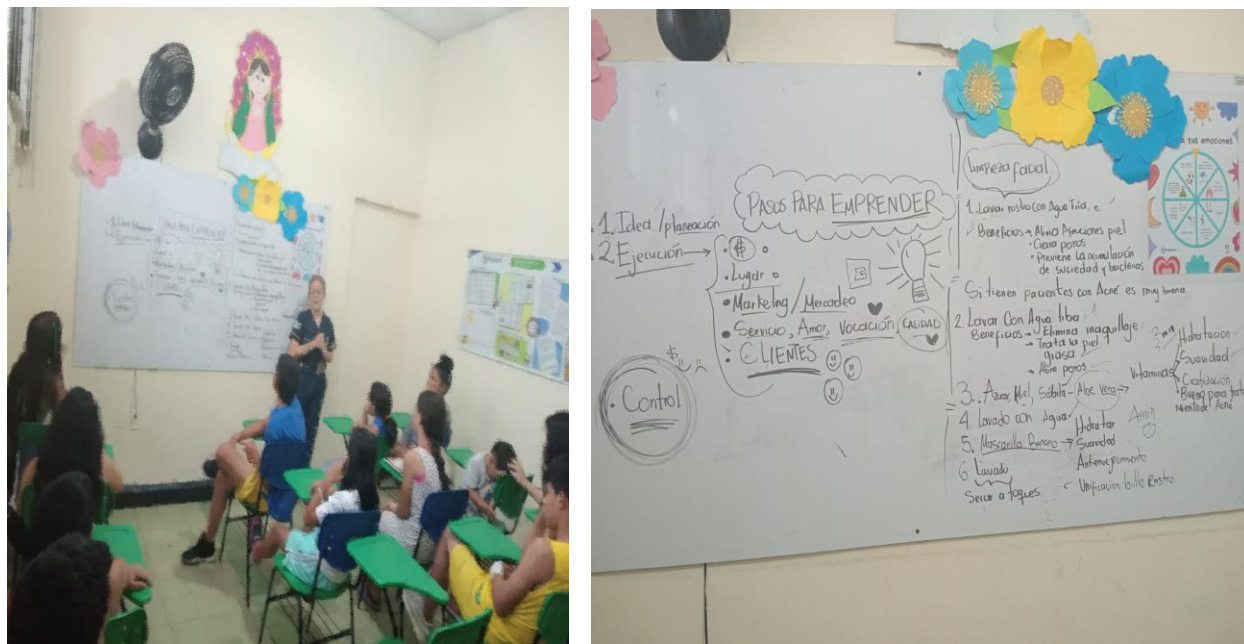 PASOS PARA EMPRENDER
1. Idea/planeación
2. Ejecución →
• $
• Lugar
• Marketing/Mercadeo
• Servicio, Amor, Vocación, CALIDAD
• CLIENTES
$
• Control
limpieza facial
1. Lavar rostro con Agua Fría,
Beneficios → Alivia Afecciones piel
• Cierra poros
• Previene la acumulación
de suciedad y bacterias
Si tienen pacientes con Acné es muy buena
2. Lavar Con Agua tibia
Beneficios → Elimina maquillaje
→ Trata la piel
grasa
→ Abre poros
3. Azucar, Miel, Sábila - Aloe vera →
Vitaminas
Hidratación
Suavidad
Cicatrización
Bueno para trata
miento de Acné
4. Lavado con Agua
5. Mascarilla Banano →
Hidratar
Suavidad
Antienvejecimiento
Unificacion brillo Rostro
6. Lavado
Secar a toques
tus emociones